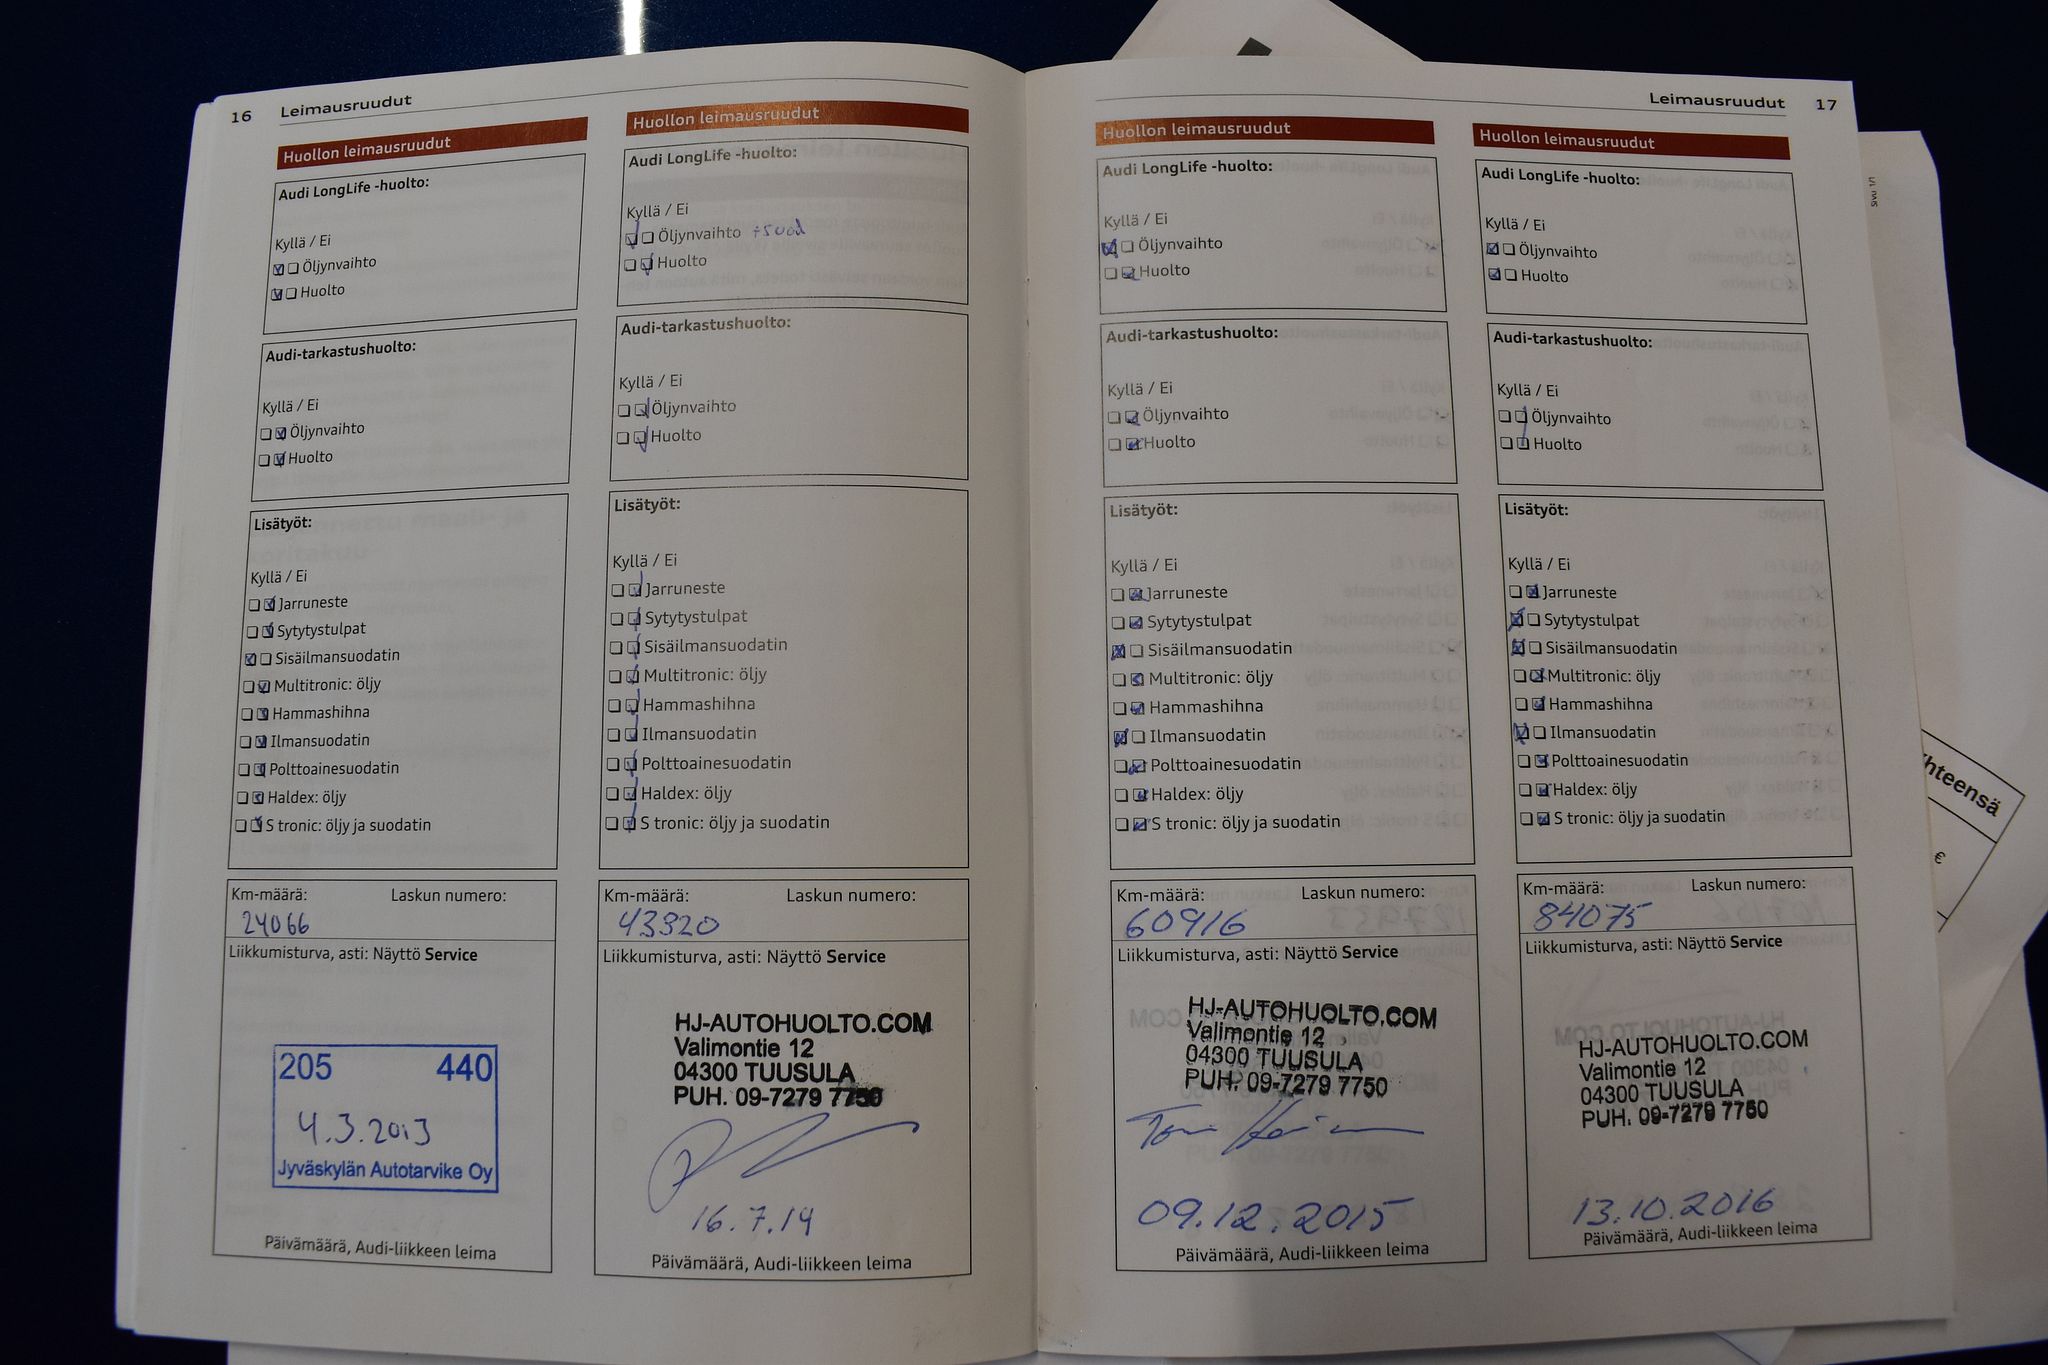 16 Leimausruudut
Huollon leimausruudut
Audi LongLife -huolto:
Kyllä / Ei
Öljynvaihto
Huolto
Audi-tarkastushuolto:
Kyllä / Ei
Öljynvaihto
Huolto
Lisätyöt:
Kyllä / Ei
Jarruneste
Sytytystulpat
Sisäilmansuodatin
Multitronic: öljy
Hammashihna
Ilmansuodatin
Polttoainesuodatin
Haldex: öljy
S tronic: öljy ja suodatin
Km-määrä: Laskun numero:
24066
Liikkumisturva, asti: Näyttö Service
205 440
4.3.2013
Jyväskylän Autotarvike Oy
Päivämäärä, Audi-liikkeen leima
Huollon leimausruudut
Audi LongLife -huolto:
Kyllä / Ei
Öljynvaihto +suod
Huolto
Audi-tarkastushuolto:
Kyllä / Ei
Öljynvaihto
Huolto
Lisätyöt:
Kyllä / Ei
Jarruneste
Sytytystulpat
Sisäilmansuodatin
Multitronic: öljy
Hammashihna
Ilmansuodatin
Polttoainesuodatin
Haldex: öljy
S tronic: öljy ja suodatin
Km-määrä: Laskun numero:
43320
Liikkumisturva, asti: Näyttö Service
HJ-AUTOHUOLTO.COM
Valimontie 12
04300 TUUSULA
PUH. 09-7279 7750
16.7.14
Päivämäärä, Audi-liikkeen leima
Leimausruudut 17
Huollon leimausruudut
Audi LongLife -huolto:
Kyllä / Ei
Öljynvaihto
Huolto
Audi-tarkastushuolto:
Kyllä / Ei
Öljynvaihto
Huolto
Lisätyöt:
Kyllä / Ei
Jarruneste
Sytytystulpat
Sisäilmansuodatin
Multitronic: öljy
Hammashihna
Ilmansuodatin
Polttoainesuodatin
Haldex: öljy
S tronic: öljy ja suodatin
Km-määrä: Laskun numero:
60916
Liikkumisturva, asti: Näyttö Service
HJ-AUTOHUOLTO.COM
Valimontie 12
04300 TUUSULA
PUH. 09-7279 7750
09.12.2015
Päivämäärä, Audi-liikkeen leima
Huollon leimausruudut
Audi LongLife -huolto:
Kyllä / Ei
Öljynvaihto
Huolto
Audi-tarkastushuolto:
Kyllä / Ei
Öljynvaihto
Huolto
Lisätyöt:
Kyllä / Ei
Jarruneste
Sytytystulpat
Sisäilmansuodatin
Multitronic: öljy
Hammashihna
Ilmansuodatin
Polttoainesuodatin
Haldex: öljy
S tronic: öljy ja suodatin
Km-määrä: Laskun numero:
84075
Liikkumisturva, asti: Näyttö Service
HJ-AUTOHUOLTO.COM
Valimontie 12
04300 TUUSULA
PUH. 09-7279 7750
13.10.2016
Päivämäärä, Audi-liikkeen leima
Sivu 1/1
hteensä
€